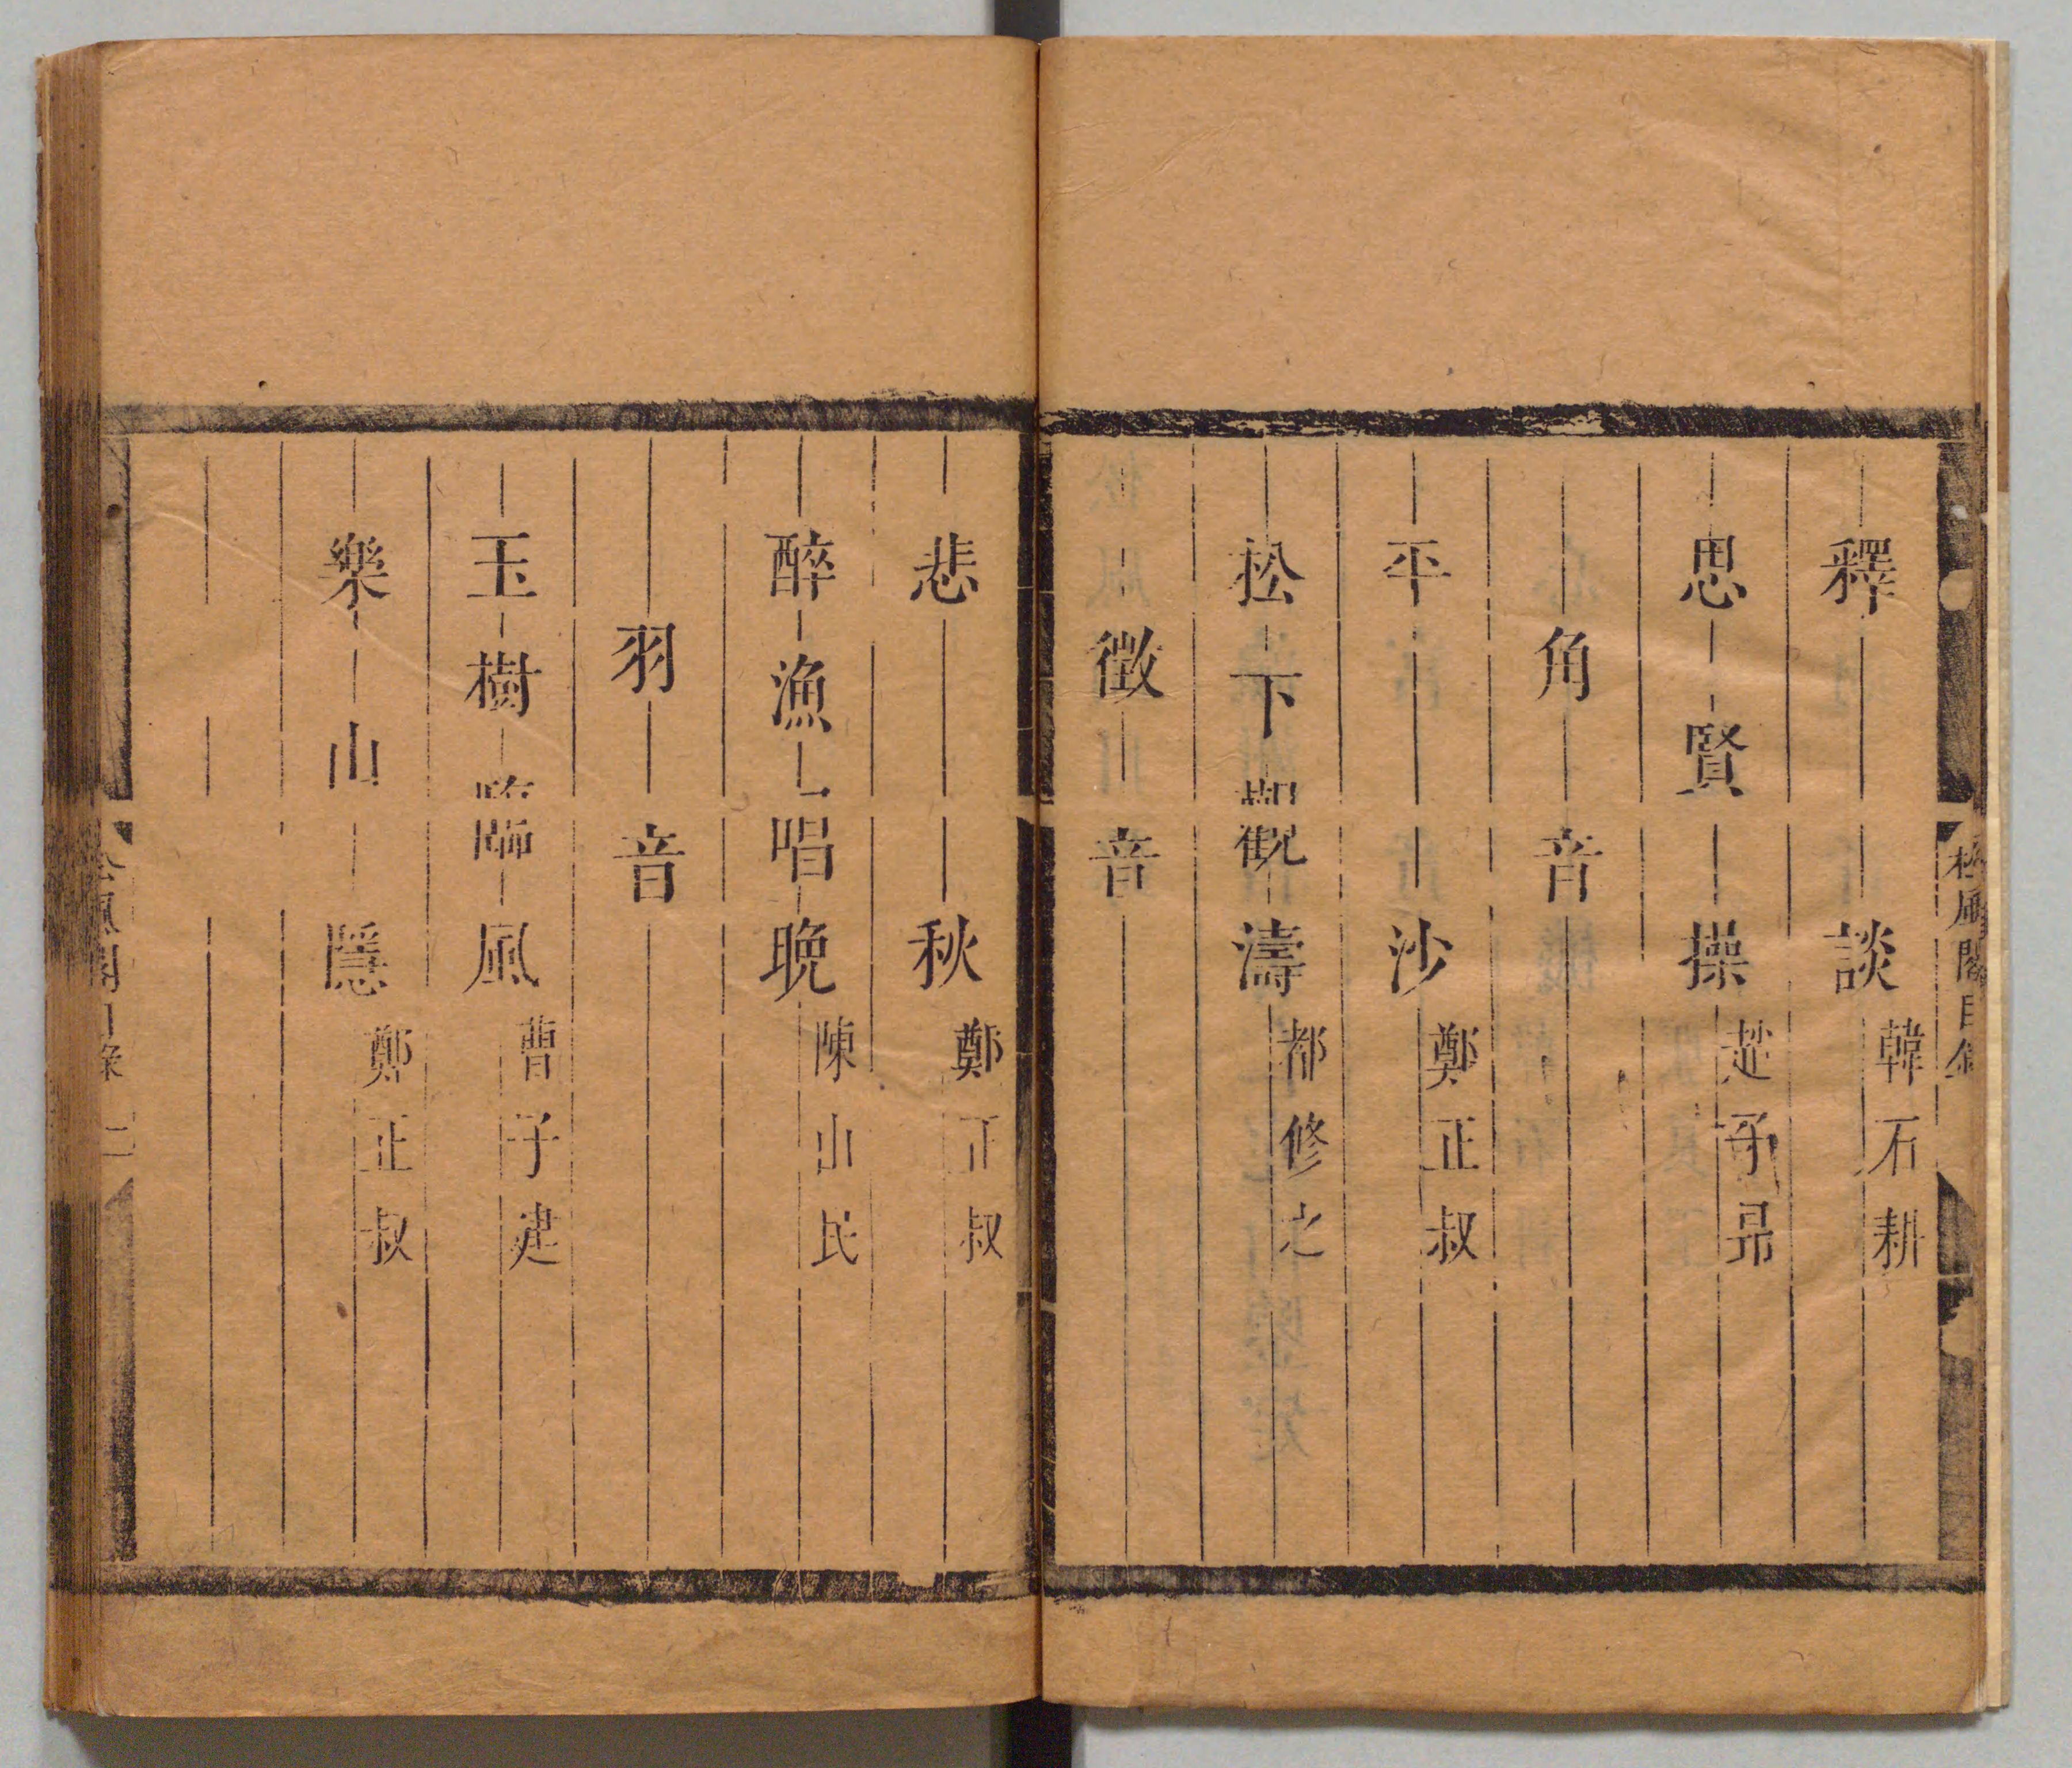 釋談 韓石耕
思賢操 趙子昻
角音
平沙 鄭正叔
松下觀濤 都修之
徵音
悲秋 鄭正叔
醉漁唱晚 陳山民
羽音
玉樹臨風 曹子建
樂山隱 鄭正叔
松風閣目錄
松風閣目錄 二